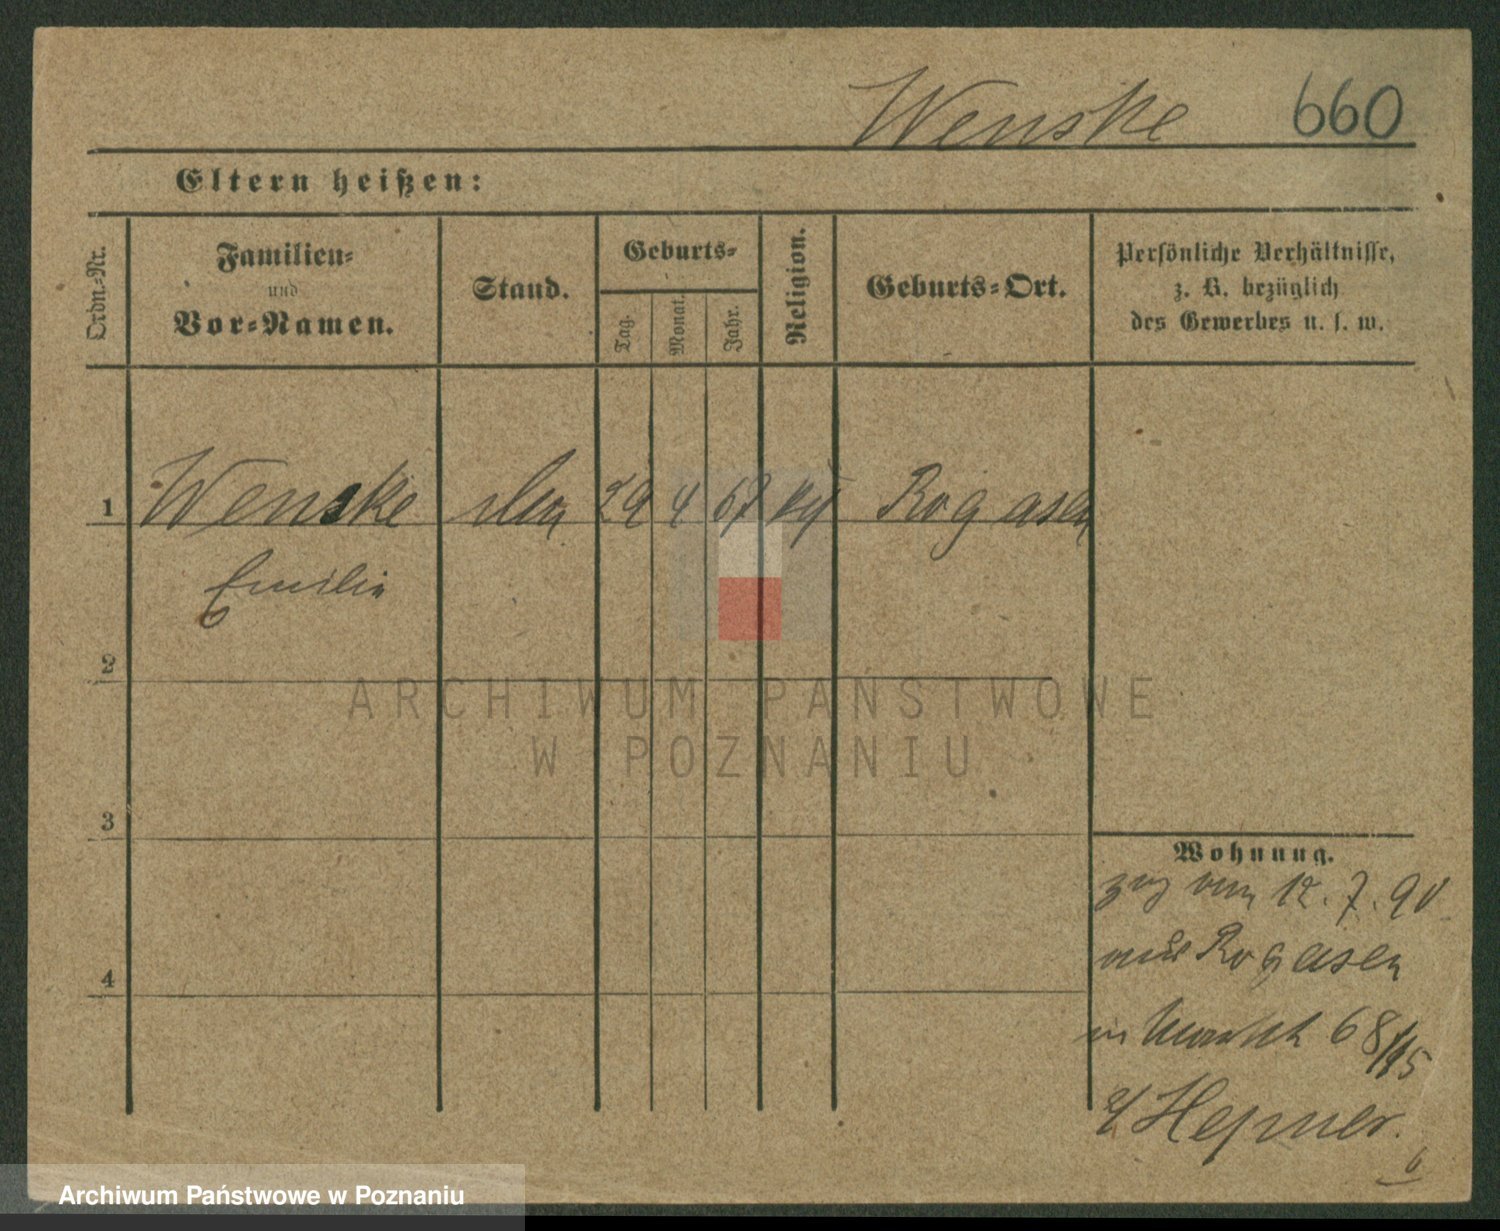 Wenske 660
Eltern heißen:
Ordn.-Nr.
Familien-
und
Vor-Namen.
Stand.
Geburts-
Tag.
Monat.
Jahr.
Religion.
Geburts-Ort.
Persönliche Verhältnisse,
z. B. bezüglich
des Gewerbes u. s. w.
1 Wenske 29 4 67 Rogasen
Emilie
2
ARCHIWUM PAŃSTWOWE
W POZNANIU
3
Wohnung.
zog vom 12.7.90
aus Rogasen
4
68/15
Hepner.
6
Archiwum Państwowe w Poznaniu